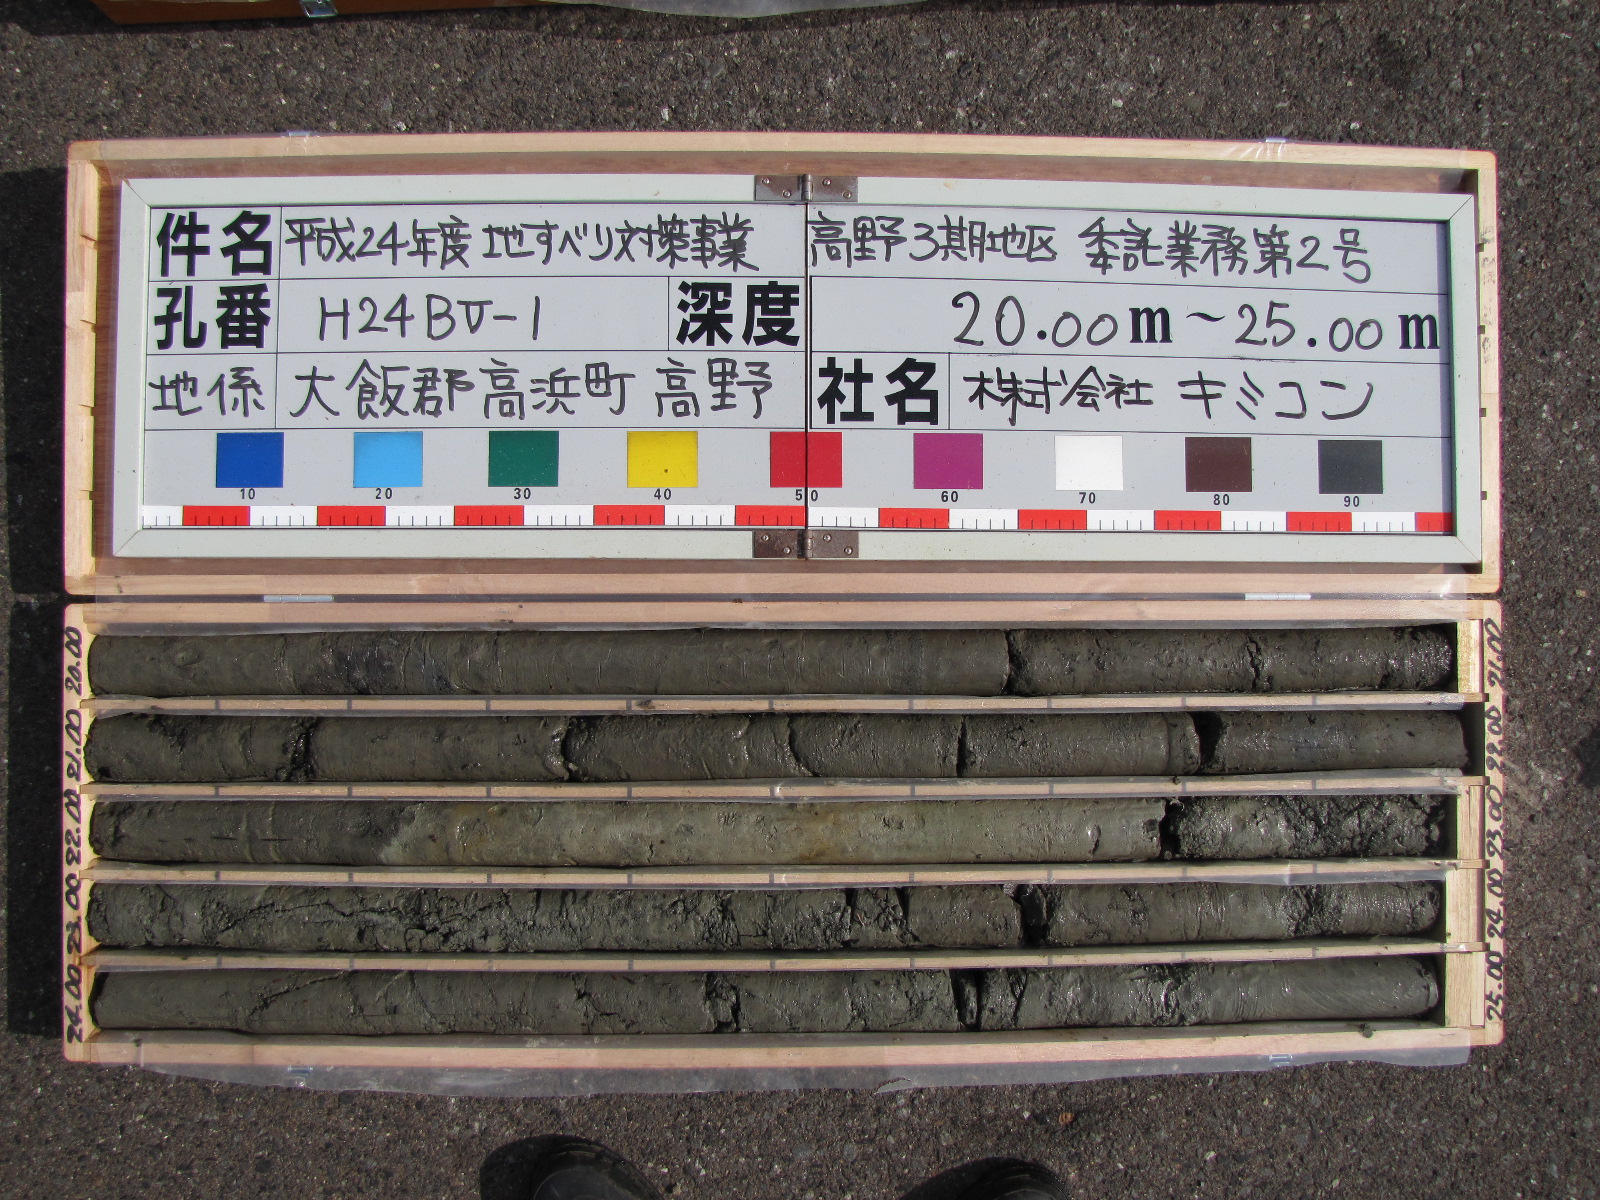 件名 平成24年度 地すべり対策事業 高野3期地区 委託業務第2号
孔番 H24BV-1 深度 20.00m~25.00m
地係 大飯郡高浜町 高野 社名 株式会社 キミコン
10 20 30 40 50 60 70 80 90
20.00 21.00
21.00 22.00
22.00 23.00
23.00 24.00
24.00 25.00